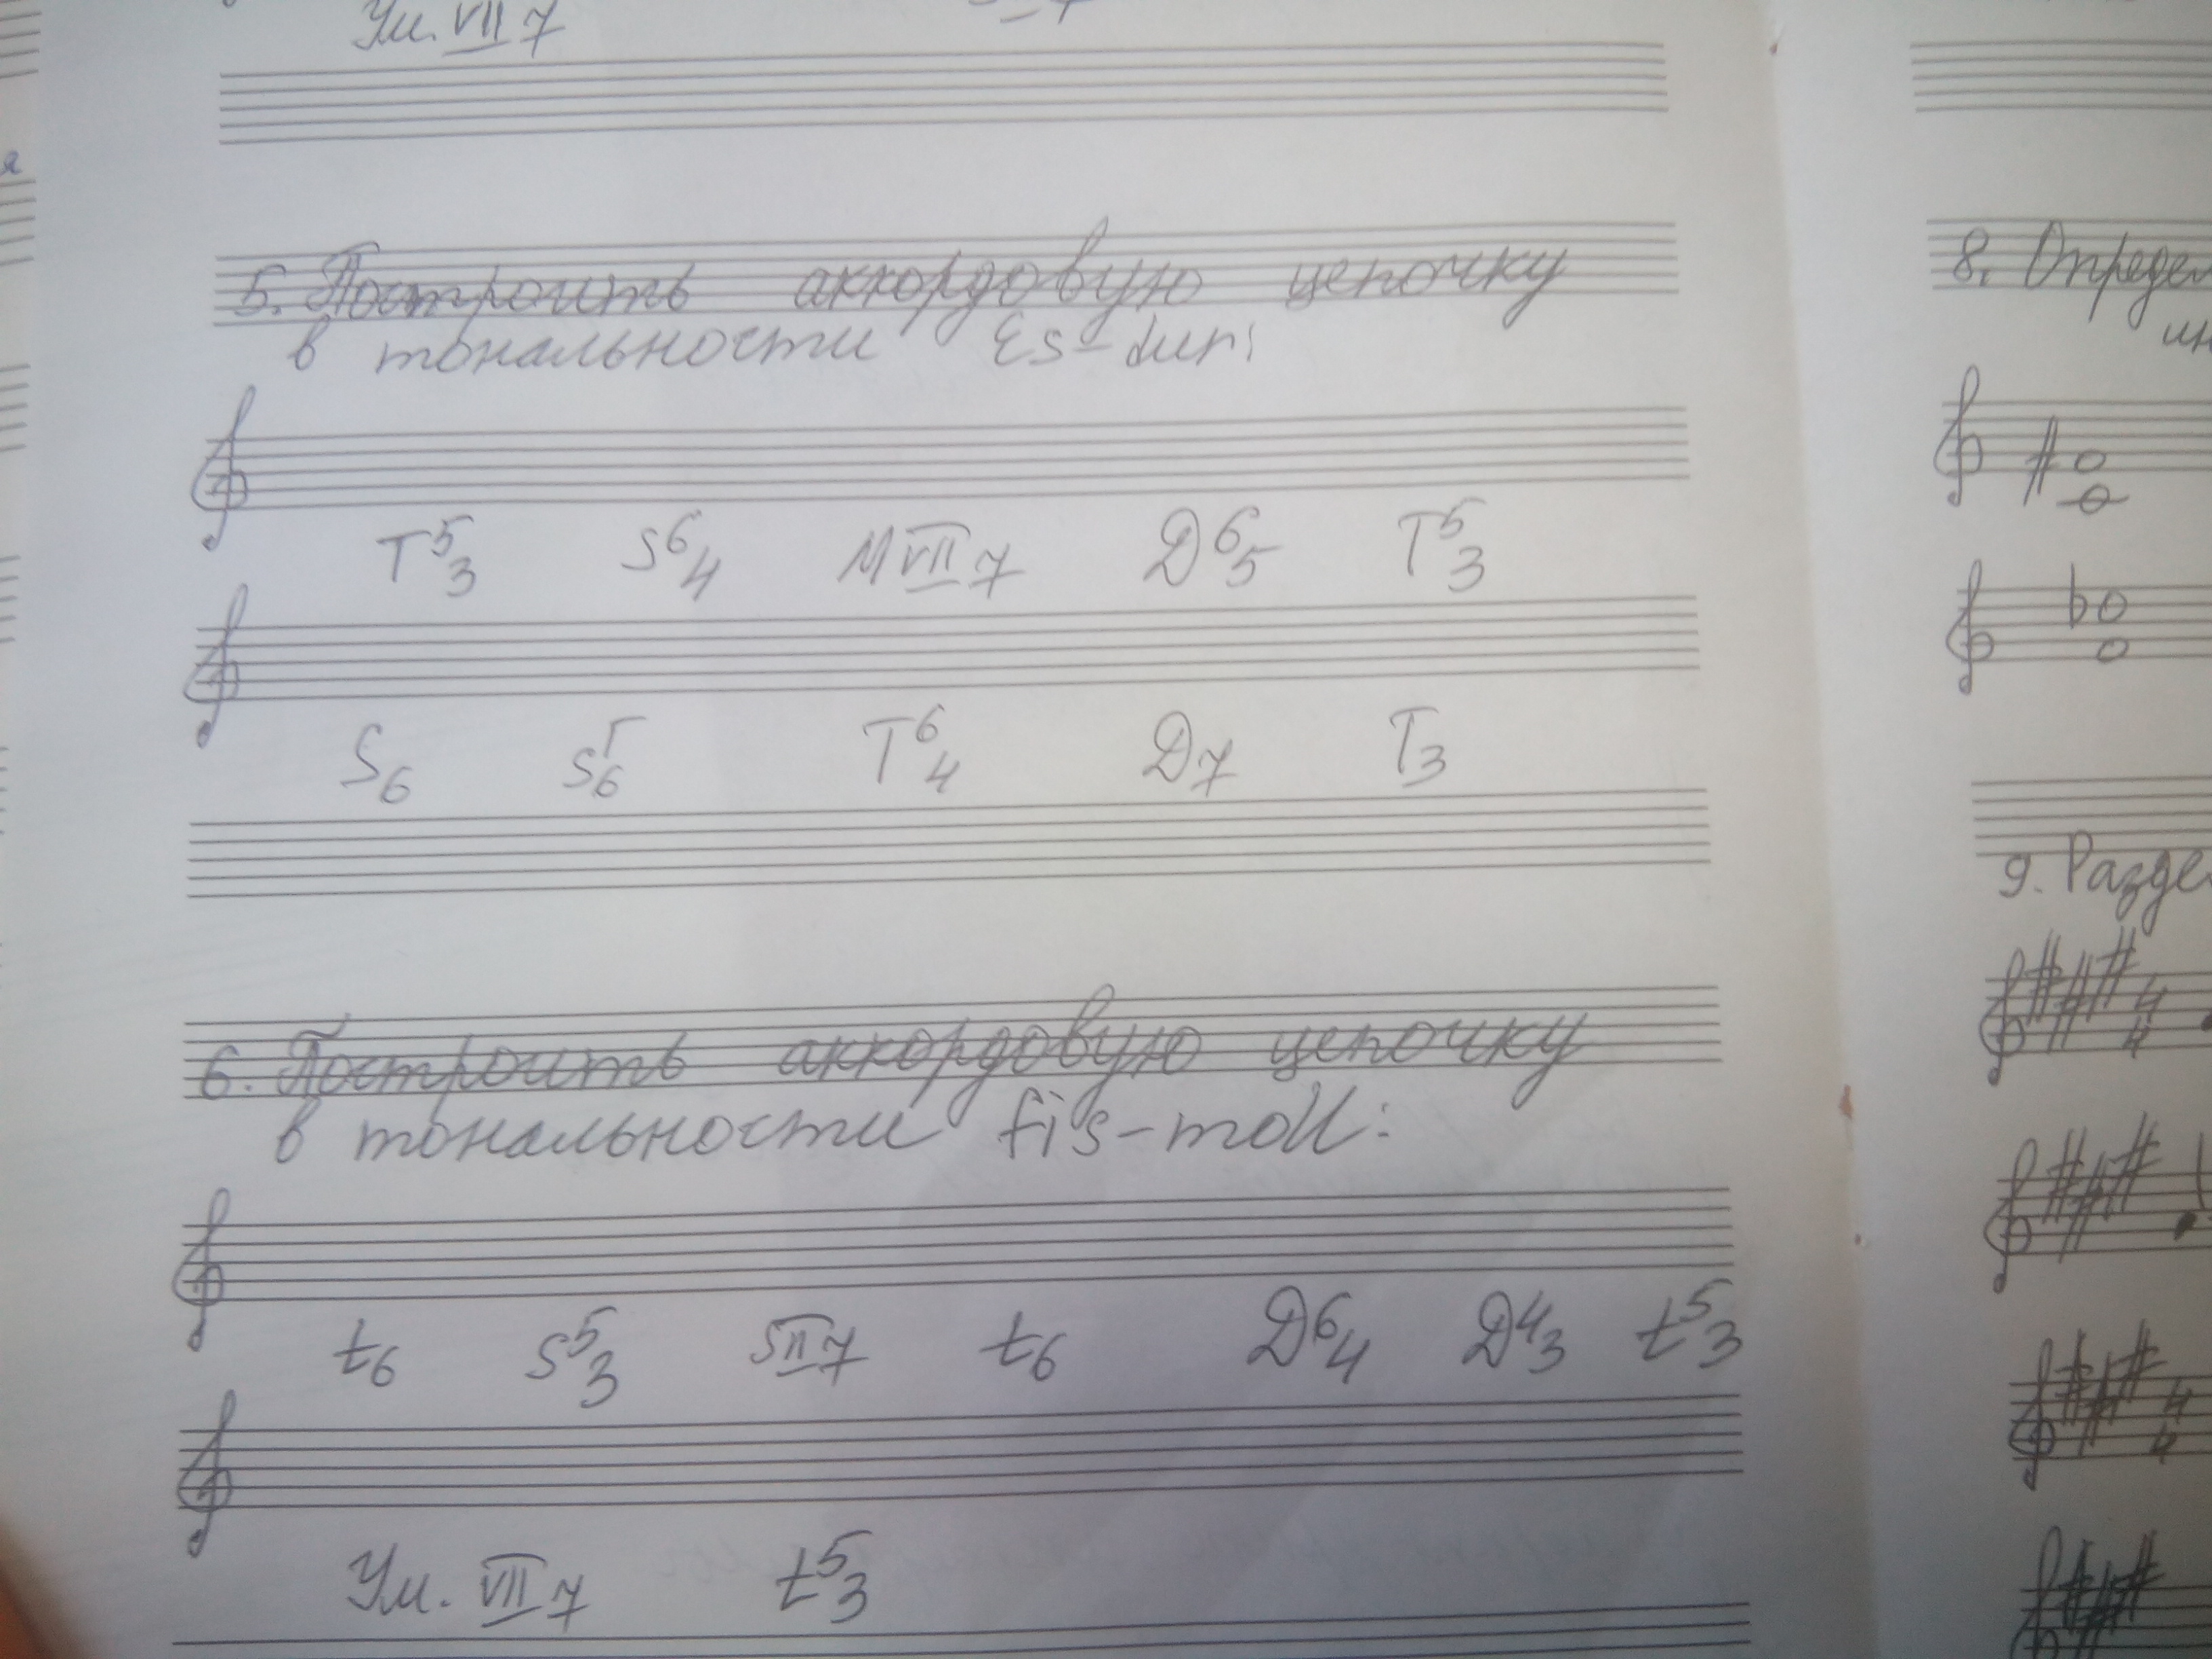 Ум. VII7
5. Построить аккордовую цепочку
в тональности Es-dur:
T5/3 S6/4 MVII7 D6/5 T5/3
S6 S6г T6/4 D7 T3
6. Построить аккордовую цепочку
в тональности fis-moll:
t6 s5/3 SII7 t6 D6/4 D4/3 t5/3
Ум. VII7 t5/3
8. Определ
ин
9. Разде
4
4
4
4